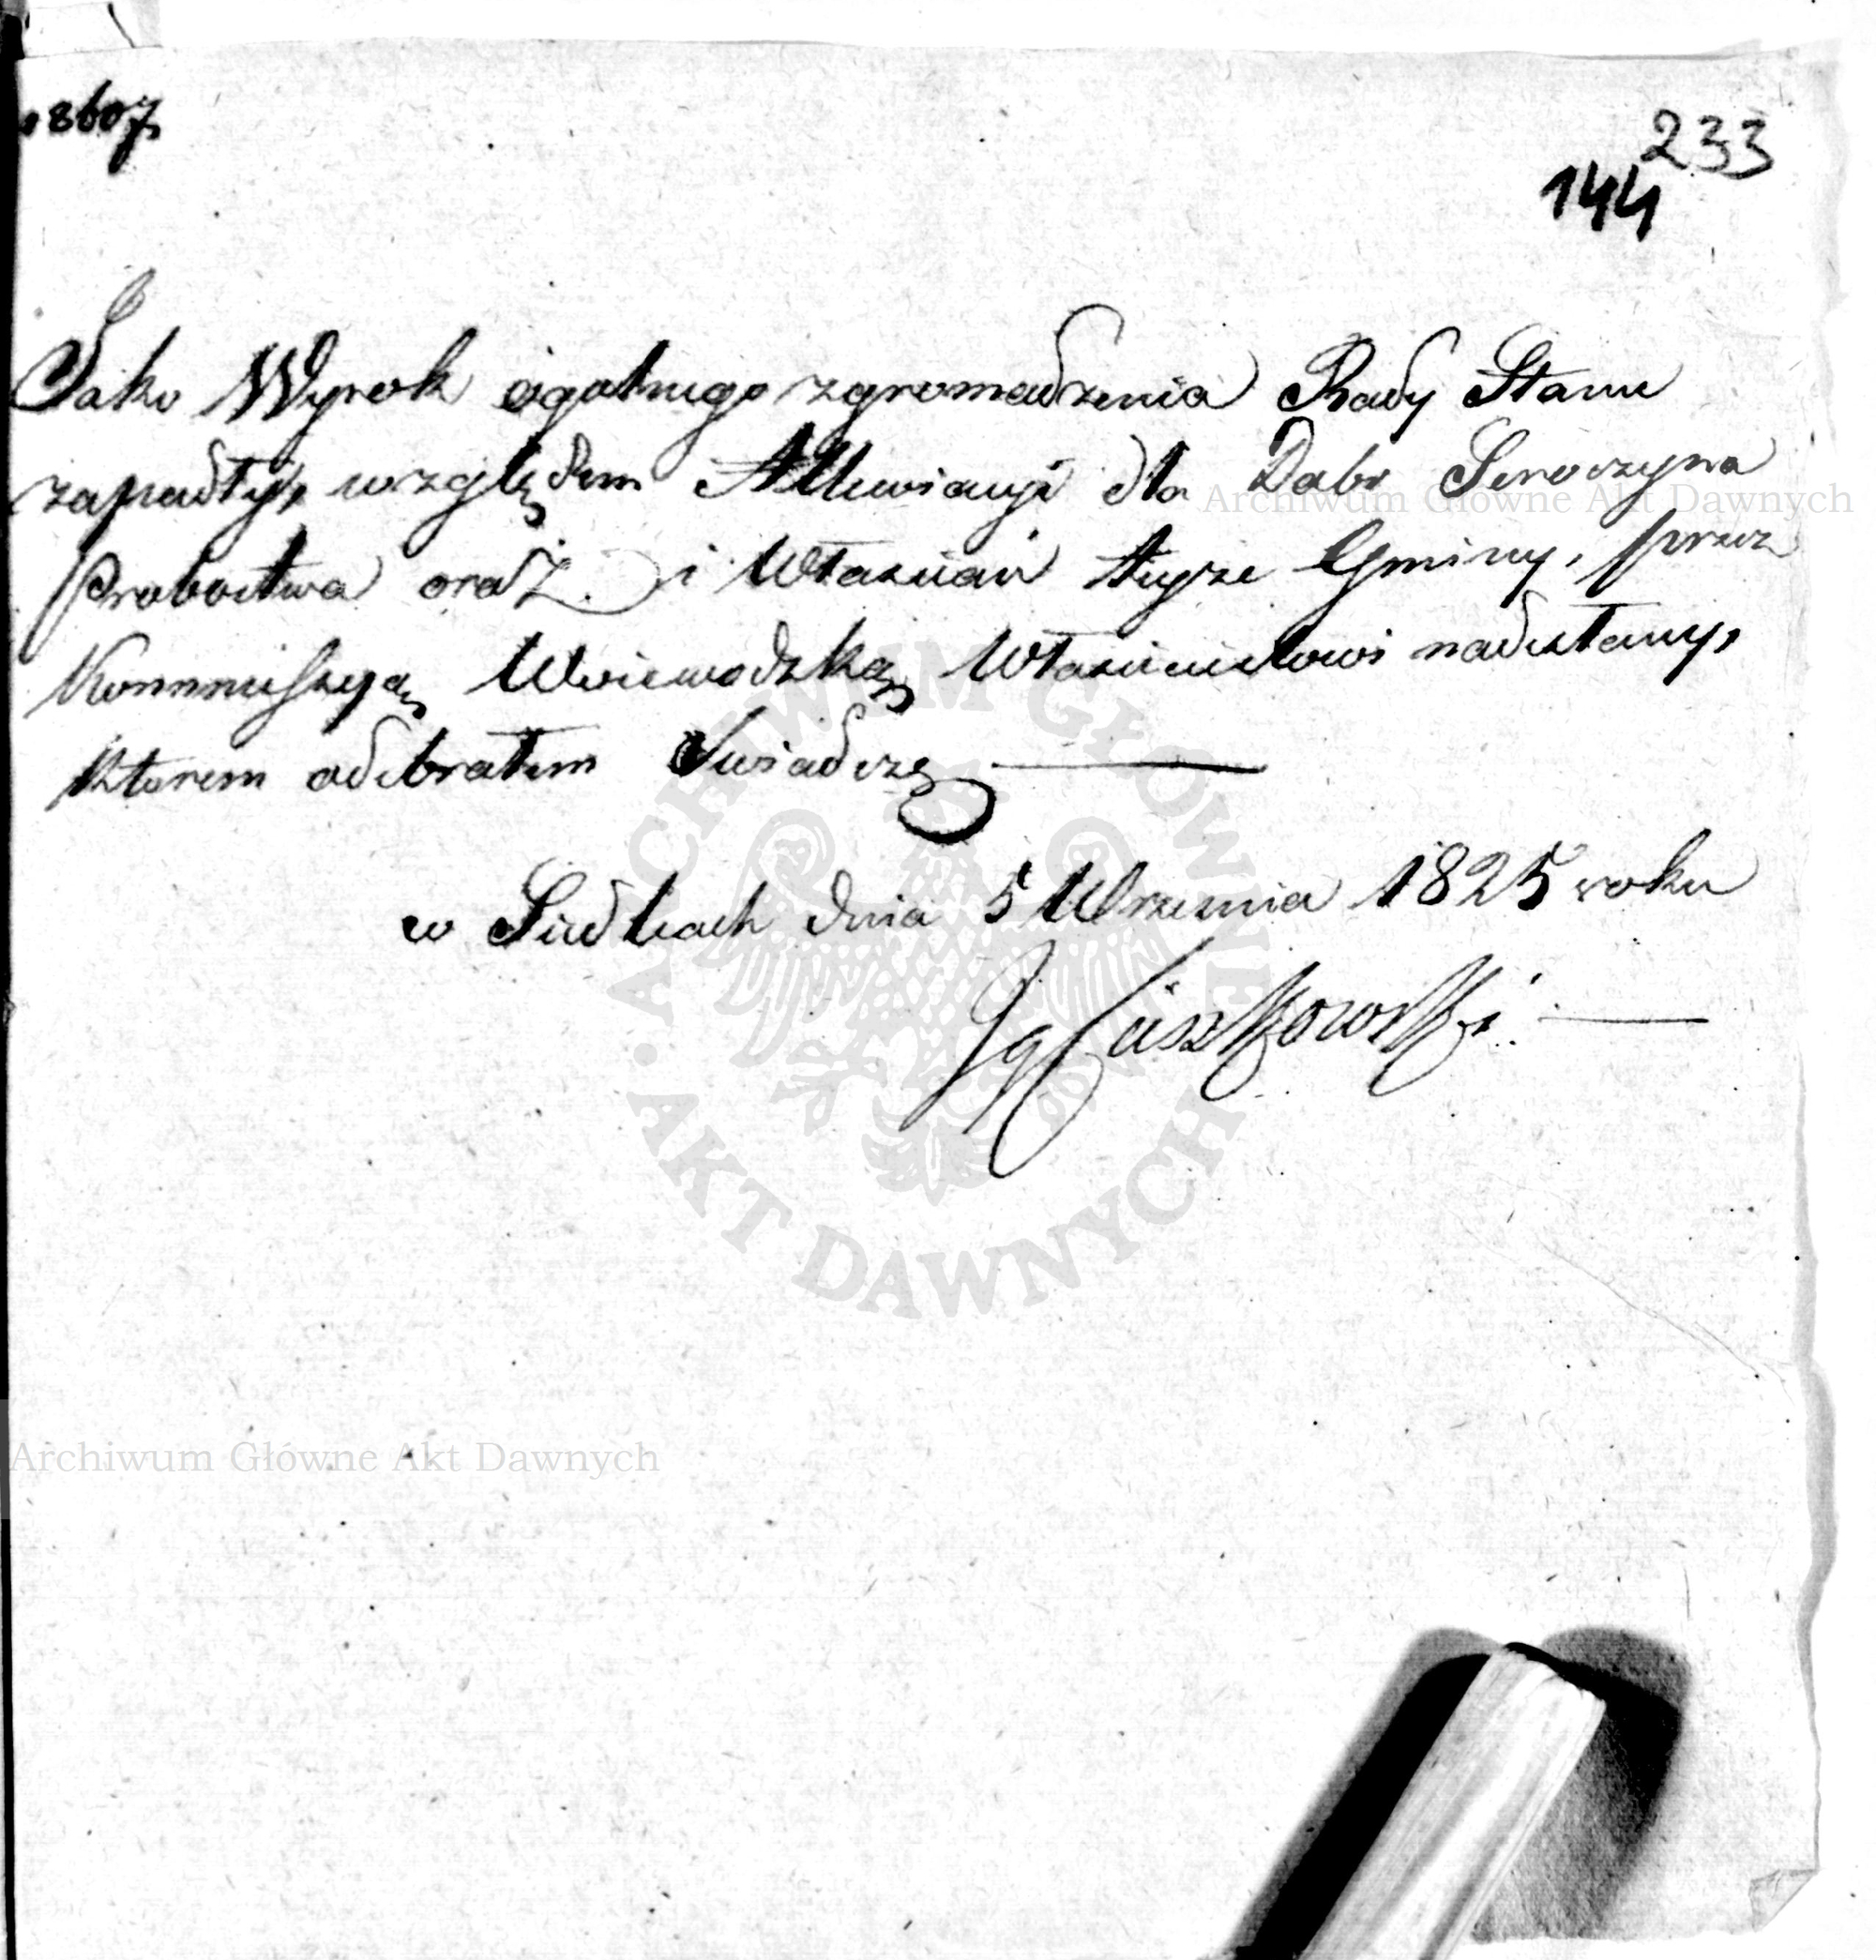 8607
233
144
Jako Wyrok ogolnego zgromadzenia Rady Stanu
zapadły, względem Allewiacyi dla Dobr Seroczyna
Probostwa oraz i Włascian teyże Gminy, przez
Kommissyą Woiewodzką Włascicielowi nadesłany,
ktorem odebrałem Swiadczę
w Siedlcach dnia 5 Wrzesnia 1825 roku
Ciszkowski
Archiwum Główne Akt Dawnych
ARCHIWUM GŁÓWNE · AKT DAWNYCH ·
Archiwum Główne Akt Dawnych